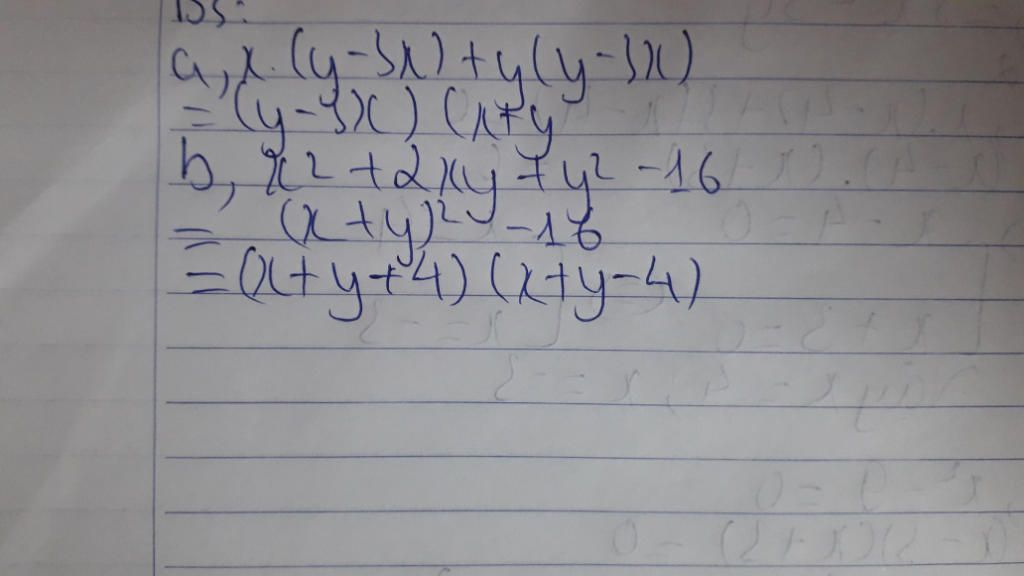 B5:
a, x.(y-3x)+y(y-3x)
=(y-3x)(x+y
b, x²+2xy+y²-16
= (x+y)²-16
=(x+y+4)(x+y-4)